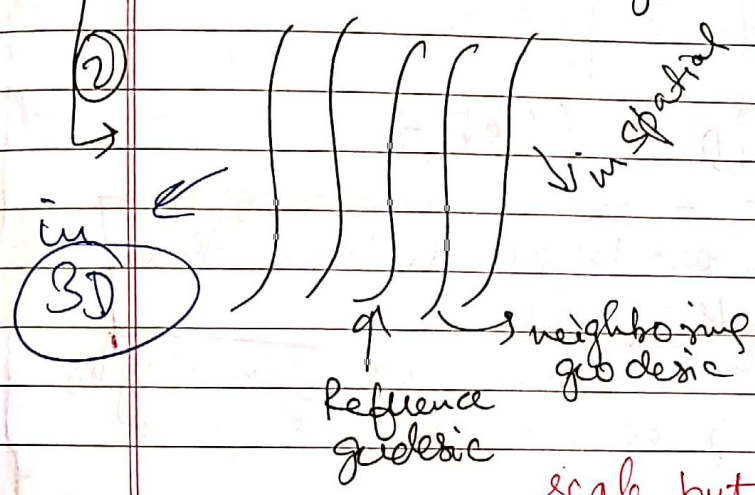 2
in spatial
in
3D
neighboring
geodesic
Refrence
geodesic
scale but